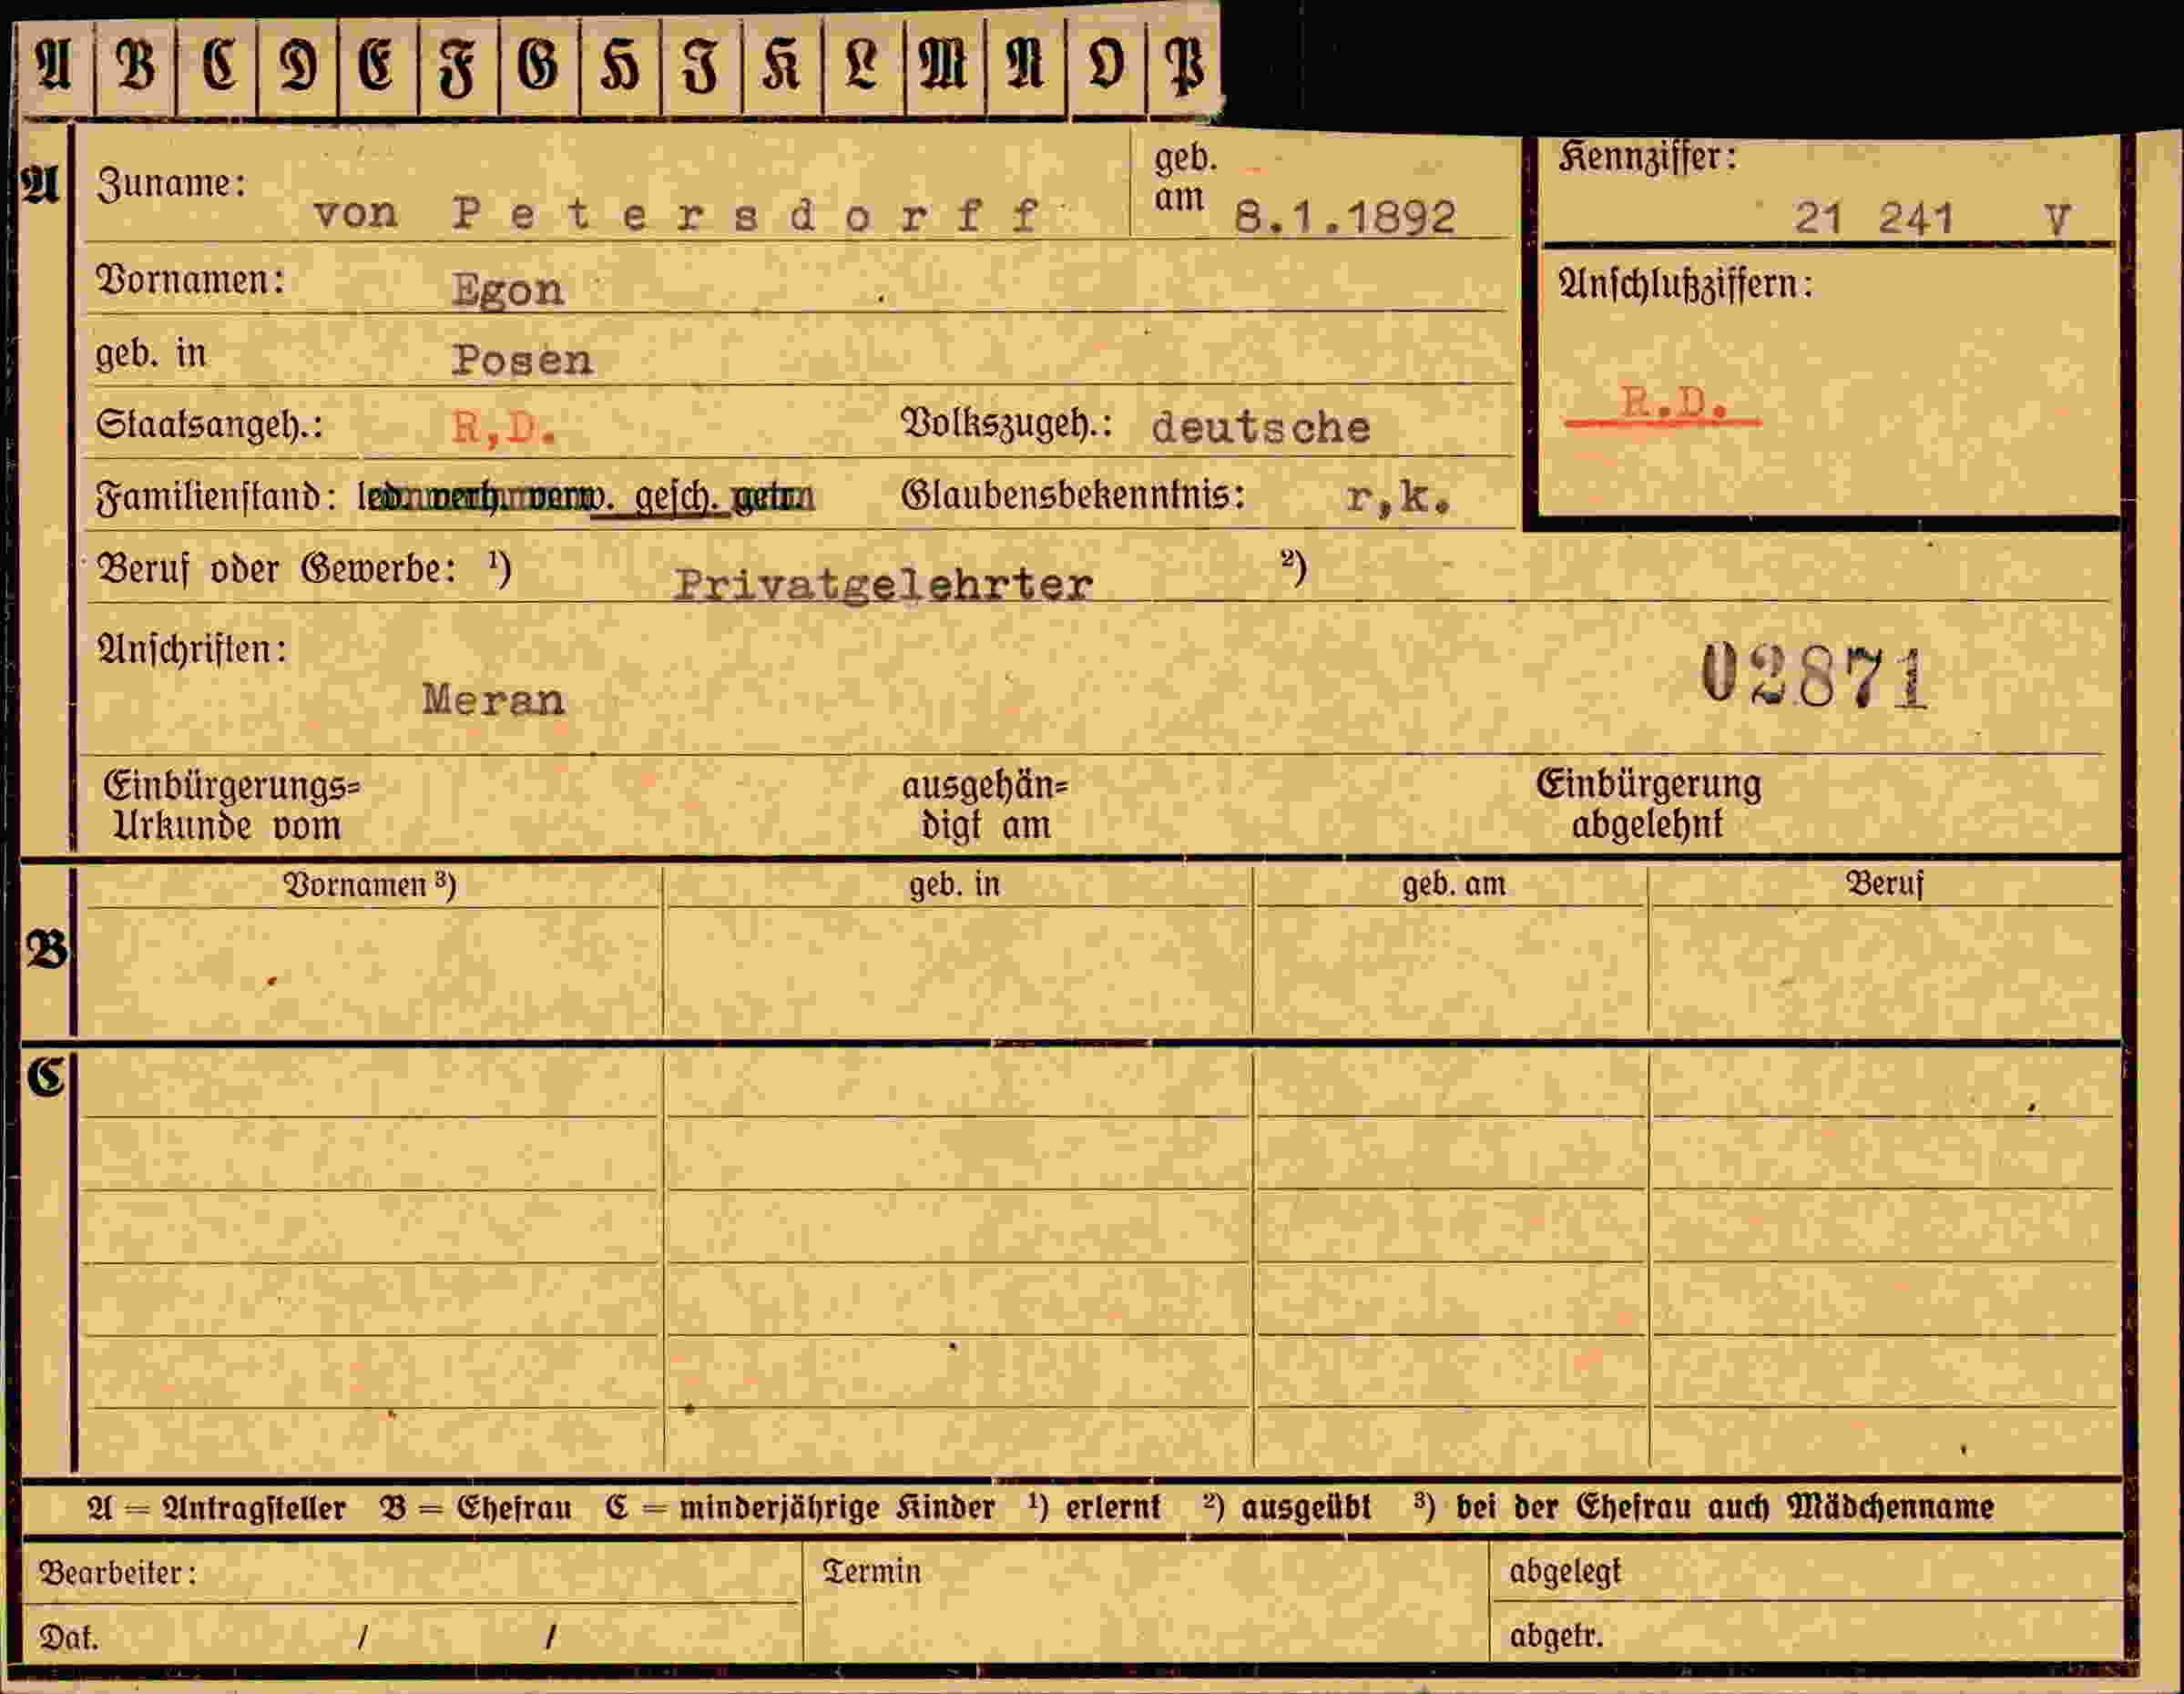 A B C D E F G H I K L M N O P
A Zuname: von Petersdorff geb. am 8.1.1892 Kennziffer: 21 241 V
Vornamen: Egon Anschlußziffern:
geb. in Posen
R.D.
Staatsangeh.: R,D. Volkszugeh.: deutsche
Familienstand: led. verh. verw. gesch. getr. Glaubensbekenntnis: r,k.
Beruf oder Gewerbe: ¹) Privatgelehrter ²)
Anschriften:
Meran 02871
Einbürgerungs= ausgehän= Einbürgerung
Urkunde vom digt am abgelehnt
Vornamen ³) geb. in geb. am Beruf
B
C
A = Antragsteller B = Ehefrau C = minderjährige Kinder ¹) erlernt ²) ausgeübt ³) bei der Ehefrau auch Mädchenname
Bearbeiter: Termin abgelegt
Dat. / / abgetr.